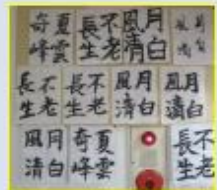 夏雲
奇峰
不老
長生
月白
風清
不老
長生
不老
長生
月白
風清
月白
風清
月白
風清
夏雲
奇峰
不老
長生